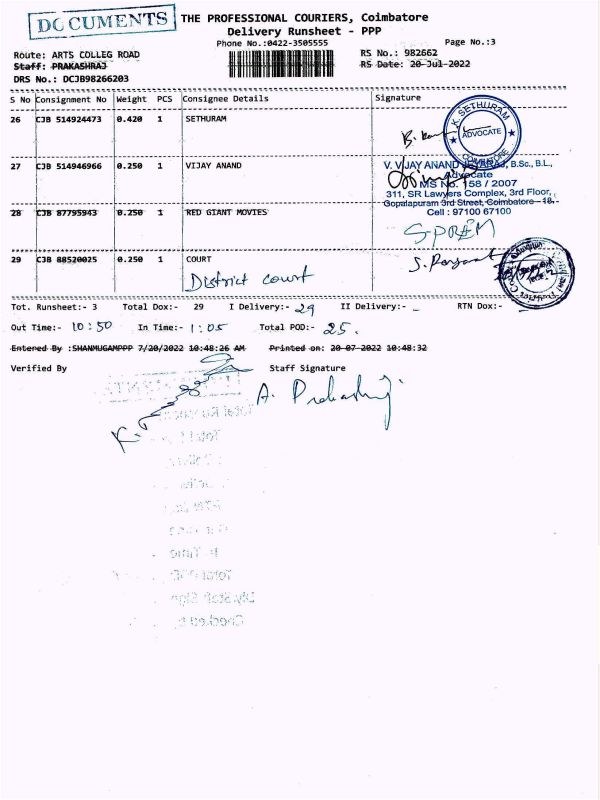 DOCUMENTS
THE PROFESSIONAL COURIERS, Coimbatore
Delivery Runsheet - PPP
Phone No.:0422-3505555
Page No.:3
Route: ARTS COLLEG ROAD
RS No.: 982662
Staff: PRAKASHRAJ
RS Date: 20-Jul-2022
DRS No.: DCJB98266203
S No Consignment No Weight PCS Consignee Details Signature
26 CJB 514924473 0.420 1 SETHURAM
K. SETHURAM
ADVOCATE
COIMBATORE
27 CJB 514946966 0.250 1 VIJAY ANAND
V. VIJAY ANAND JEYARAJ, B.Sc., B.L.,
Advocate
MS No. 158 / 2007
311, SR Lawyers Complex, 3rd Floor,
Gopalapuram 3rd Street, Coimbatore - 18.
Cell : 97100 67100
28 CJB 87795943 0.250 1 RED GIANT MOVIES
S-PREM
29 CJB 88520025 0.250 1 COURT
District court
Tot. Runsheet:- 3 Total Dox:- 29 I Delivery:- 29 II Delivery:- - RTN Dox:- -
Out Time:- 10:50 In Time:- 1:05 Total POD:- 25.
Entened By :SHANMUGAMPPP 7/20/2022 10:48:26 AM Printed on: 20-07-2022 10:48:32
Verified By Staff Signature
A. Prakashraj